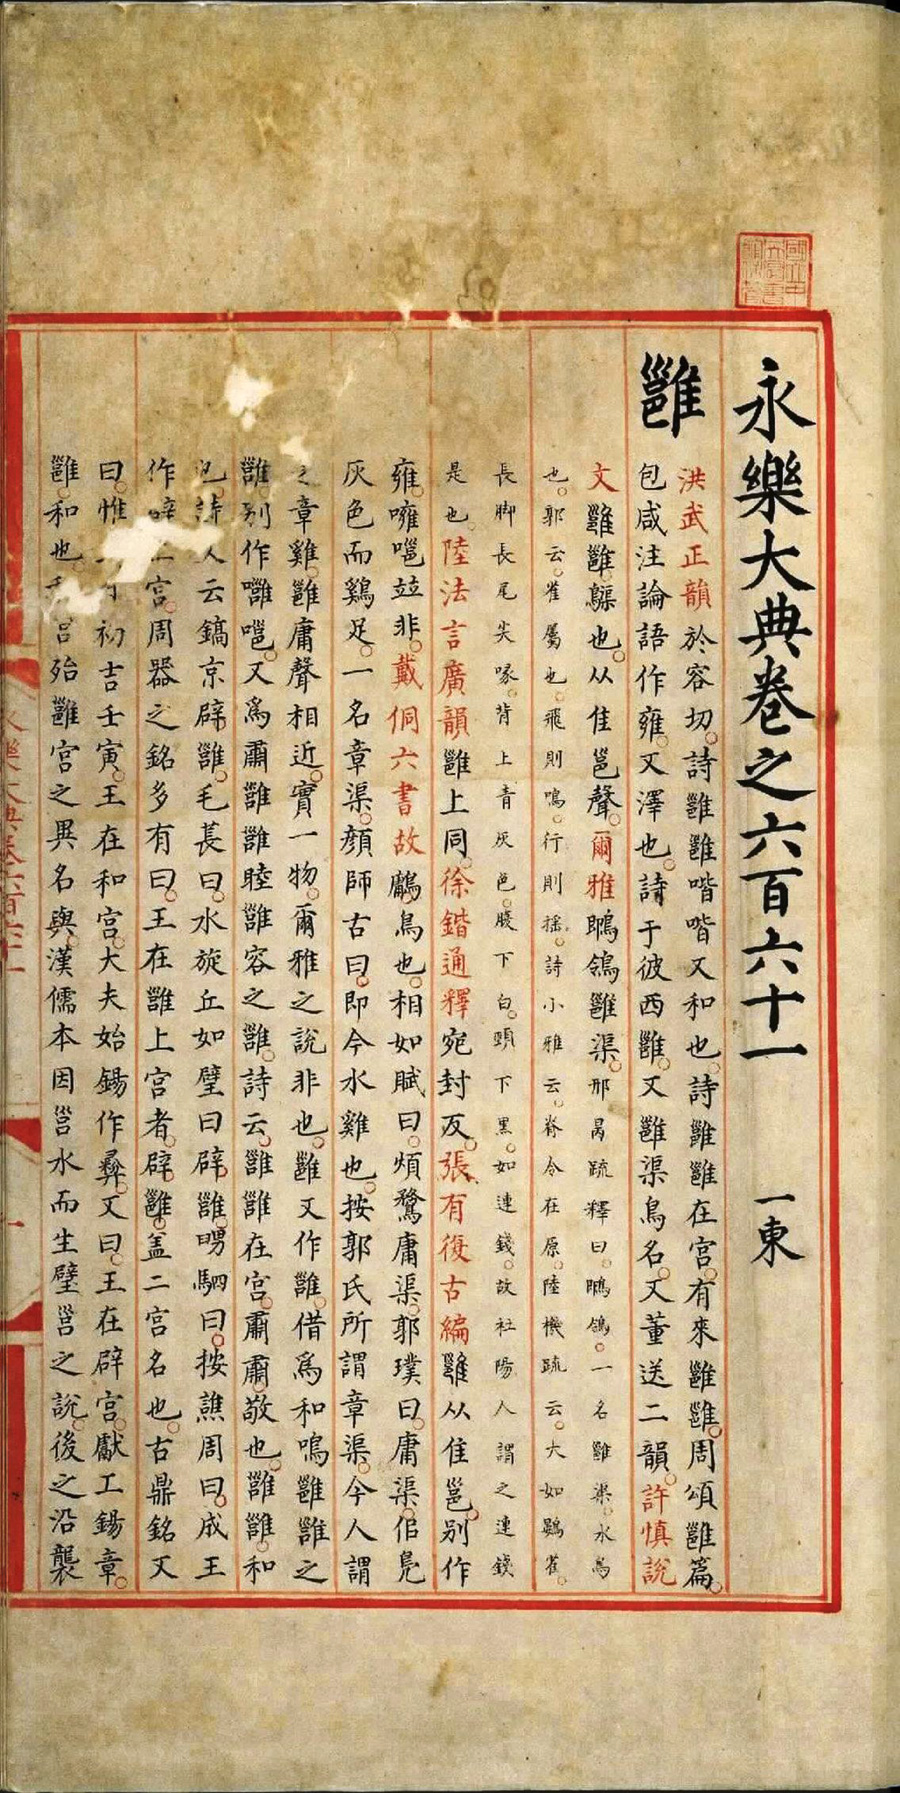 永樂大典卷之六百六十一 一東
雝
洪武正韻於容切。詩雝雝喈喈又和也。詩雝雝在宮。有來雝雝。周頌雝篇。
包咸注論語作雍。又澤也。詩于彼西雝。又雝渠鳥名。又董送二韻。許慎說
文雝雝䳵也。从隹邕聲。爾雅䳭鴒雝渠。邢昺疏釋曰。䳭鴒。一名雝渠。水鳥
也。郭云。雀屬也。飛則鳴。行則搖。詩小雅云。脊令在原。陸機疏云。大如鷃雀。
長脚長尾尖喙。背上青灰色。腹下白。頸下黑。如連錢。故杜陽人謂之連錢
是也。陸法言廣韻雝上同。徐鍇通釋宛封反。張有復古編雝从隹邕。別作
雍。噰嗈竝非。戴侗六書故鷛鳥也。相如賦曰。煩鶩庸渠。郭璞曰。庸渠。佀鳧
灰色而鷄足。一名章渠。顏師古曰。即今水雞也。按郭氏所謂章渠。今人謂
之章雞。雝庸聲相近。實一物。爾雅之說非也。雝又作雝。借爲和鳴雝雝之
雝。別作噰嗈。又爲肅雝雝睦雝容之雝。詩云。雝雝在宮。肅肅敬也。雝雝。和
也。詩人云鎬京辟雝。毛萇曰。水旋丘如璧曰辟雝。嘐駉曰。按譙周曰。成王
作 宮。周器之銘多有曰。王在雝上宮者。辟雝。盖二宮名也。古鼎銘又
曰。惟 初吉壬寅。王在和宮。大夫始錫作彝。又曰。王在辟宮。獻工錫章。
雝。和也。 宮殆雝宮之異名與。漢儒本因邕水而生璧邕之說。後之沿襲